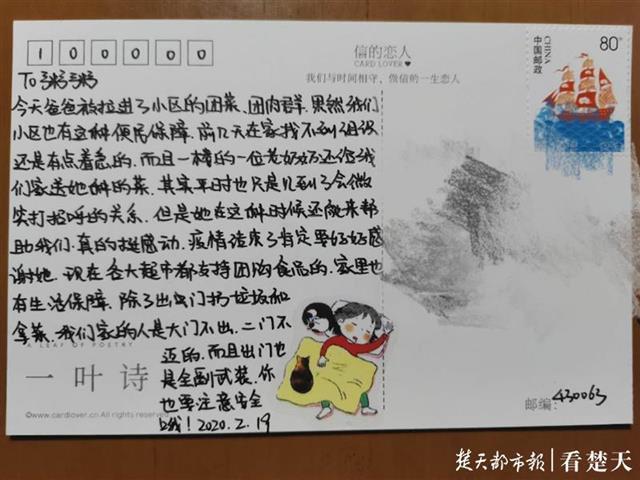 100000
信的恋人
CARD LOVER♥
我们与时间相守，做信的一生恋人
80分
中国邮政
CHINA
To 粥粥
今天爸爸被拉进了小区的团菜、团肉群.果然我们
小区也有这种便民保障.前几天在家找不到组织
还是有点着急的.而且一楼的一位老奶奶还给我
们家送她种的菜.其实平时也只是见到了会微
笑打招呼的关系.但是她在这种时候还敢来帮
助我们.真的挺感动.疫情结束了肯定要好好感
谢她.现在各大超市都支持团购食品的.家里也
有生活保障.除了出门扔垃圾和
拿菜.我们家的人是大门不出.二门不
迈的.而且出门也
是全副武装.你
也要注意安全
哦！2020.2.19
A LEAF OF POETRY
一叶诗
©www.cardlover.cn All rights reserved
邮编：430063
楚天都市报|看楚天